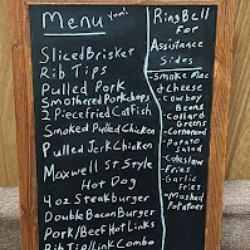 Menu Yumi
Sliced Brisket
Rib Tips
Pulled Pork
Smothered Porkchops
2 Piece fried Catfish
Smoked Pulled Chicken
Pulled Jerk Chicken
Maxwell St Style
Hot Dog
4 oz Steakburger
Double Bacon Burger
Pork/Beef Hot Links
Rib Tip/Link Combo
Ring Bell
For
Assistance
Sides
-Smoke Mac
& Cheese
-Cowboy
Beans
-Collard
Greens
-Cornbread
-Potato
Salad
-Coleslaw
-Fries
-Garlic
Fries
-Mashed
Potatoes